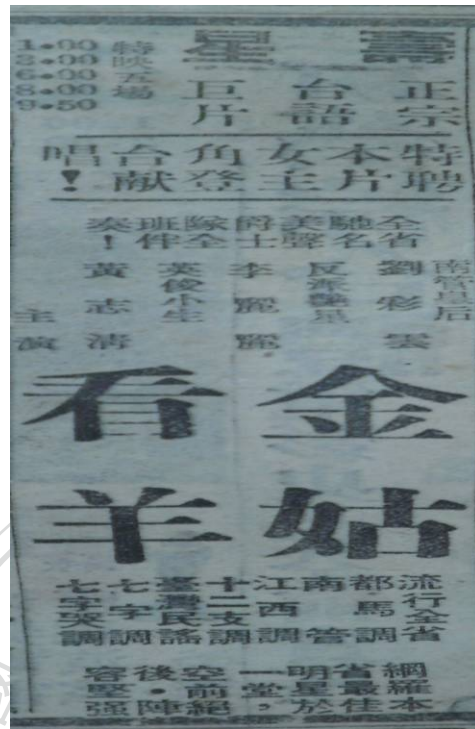 壽星
特映五場
1.00
3.00
6.00
8.00
9.50
正宗
台語
巨片
特聘
本片
女主
角登
台献
唱!
全省
馳名
美聲
爵士
隊全
班伴
奏!
南管皇后
劉彩雲
反派艷星
李麗麗
英俊小生
黃志清
主演
金姑
看羊
流行全省
都馬調
南管
江西調
十二支調
臺灣民謠
七字調
七字哭調
網羅本
省最佳
明星於
一堂,
空前絕
後・陣
容堅强